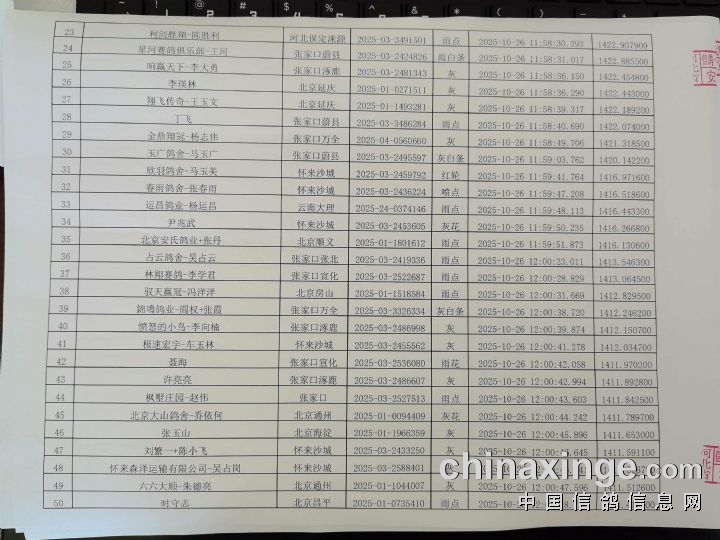 23 利剑胜翔-陈胜利 河北保定涞源 2025-03-3491501 雨点 2025-10-26 11:58:30.393 1422.937900
24 星河赛鸽俱乐部-王河 张家口蔚县 2025-03-2424826 雨白条 2025-10-26 11:58:31.017 1422.885500
25 响赢天下-李大勇 张家口涿鹿 2025-03-2481343 灰 2025-10-26 11:58:36.150 1422.454800
26 李瑛林 北京延庆 2025-01-0271511 灰 2025-10-26 11:58:36.290 1422.443000
27 翔飞传奇-王玉文 北京延庆 2025-01-1493281 灰 2025-10-26 11:58:39.317 1422.189200
28 丁飞 张家口蔚县 2025-03-3486284 雨点 2025-10-26 11:58:40.690 1422.074000
29 金鼎翔冠-杨志伟 张家口万全 2025-04-0560660 灰 2025-10-26 11:58:49.706 1421.318500
30 玉广鸽舍-马玉广 张家口蔚县 2025-03-2495597 灰白条 2025-10-26 11:59:03.762 1420.142200
31 欣羽鸽舍-马玉美 怀来沙城 2025-03-2459792 红轮 2025-10-26 11:59:41.764 1416.971600
32 春雨鸽舍-张春雨 怀来沙城 2025-03-2436224 噴点 2025-10-26 11:59:47.208 1416.518600
33 运昌鸽业-杨运昌 云南大理 2025-24-0374146 雨点 2025-10-26 11:59:48.113 1416.443300
34 尹兆武 怀来沙城 2025-03-2453605 灰花 2025-10-26 11:59:50.235 1416.266800
35 北京安氏鸽业+张丹 北京顺义 2025-01-1801612 雨点 2025-10-26 11:59:51.873 1416.130600
36 占云鸽舍-吴占云 张家口张北 2025-03-2419336 雨点 2025-10-26 12:00:23.011 1413.546300
37 林翔赛鸽-李学君 张家口宣化 2025-03-2522687 雨点 2025-10-26 12:00:28.829 1413.064500
38 驭天赢冠-冯洋洋 北京房山 2025-01-1518584 雨点 2025-10-26 12:00:31.669 1412.829500
39 錦鳴鸽业-閻权+张霞 张家口万全 2025-03-3326334 灰白条 2025-10-26 12:00:38.720 1412.246200
40 愤怒的小鸟-李向楠 张家口涿鹿 2025-03-2486998 灰 2025-10-26 12:00:39.874 1412.150700
41 极速宏宇-车玉林 怀来沙城 2025-03-2455562 灰 2025-10-26 12:00:41.278 1412.034700
42 聂海 张家口宣化 2025-03-2536080 雨花 2025-10-26 12:00:42.058 1411.970200
43 许亮亮 张家口涿鹿 2025-03-2486607 灰 2025-10-26 12:00:42.994 1411.892800
44 枫墅庄园-赵伟 张家口 2025-03-2527513 雨点 2025-10-26 12:00:43.603 1411.842500
45 北京大山鸽舍-乔依何 北京通州 2025-01-0094409 灰花 2025-10-26 12:00:44.242 1411.789700
46 张玉山 北京海淀 2025-01-1966359 灰 2025-10-26 12:00:45.896 1411.653000
47 刘繁一+陈小飞 怀来沙城 2025-03-2433250 灰 2025-10-26 12:00:46.645 1411.591100
48 怀来森泽运输有限公司-吴占岗 怀来沙城 2025-03-2588401
49 六六大顺-朱德亮 北京通州 2025-01-1044007 灰 2025-10-26 12:00:47.596 1411.512600
50 时守志 北京昌平 2025-01-0735410 雨点
chinaxinge.com
中国信鸽信息网